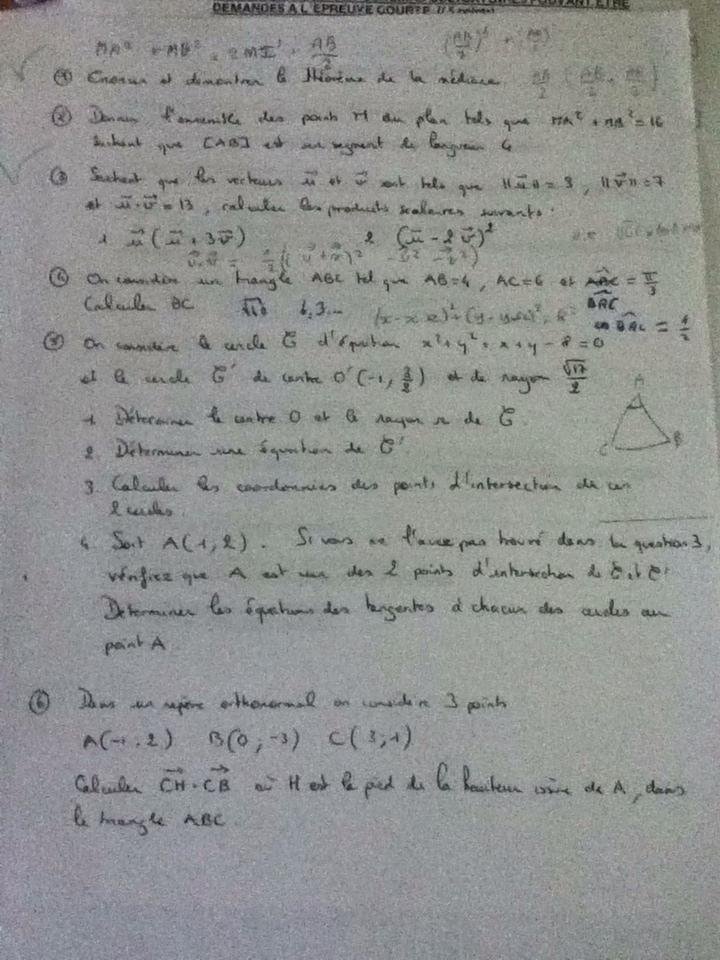 DEMANDES A L'EPREUVE COURTE
MA² + MB² = 2MI² + AB/2
① Enoncer et démontrer le théorème de la médiane.
② Donner l'ensemble des points M du plan tels que MA² + MB² = 16
sachant que [AB] est un segment de longueur 4
③ Sachant que les vecteurs u⃗ et v⃗ sont tels que ||u⃗|| = 3, ||v⃗|| = 7
et u⃗·v⃗ = 13, calculer les produits scalaires suivants.
1 u⃗(u⃗ + 3v⃗) 2 (u⃗ - 2v⃗)²
④ On considère un triangle ABC tel que AB=4, AC=6 et ABC = π/3
Calculer BC 6,3... BAC
cos BAC = 1/2
⑤ On considère le cercle C d'équation x² + y² + x + y - 8 = 0
et le cercle C' de centre O'(-1, 3/2) et de rayon √17/2
A
C B
1 Déterminer le centre O et le rayon r de C.
2. Déterminer une équation de C'.
3. Calculer les coordonnées des points d'intersection de ces
2 cercles.
4. Soit A(1,2). Si vous ne l'avez pas trouvé dans la question 3,
vérifiez que A est un des 2 points d'intersection de C et C'
Déterminer les équations des tangentes à chacun des cercles au
point A
⑥ Dans un repère orthonormal on considère 3 points
A(-1,2) B(0,-3) C(3,1)
Calculer CH⃗·CB⃗ où H est le pied de la hauteur issue de A, dans
le triangle ABC.